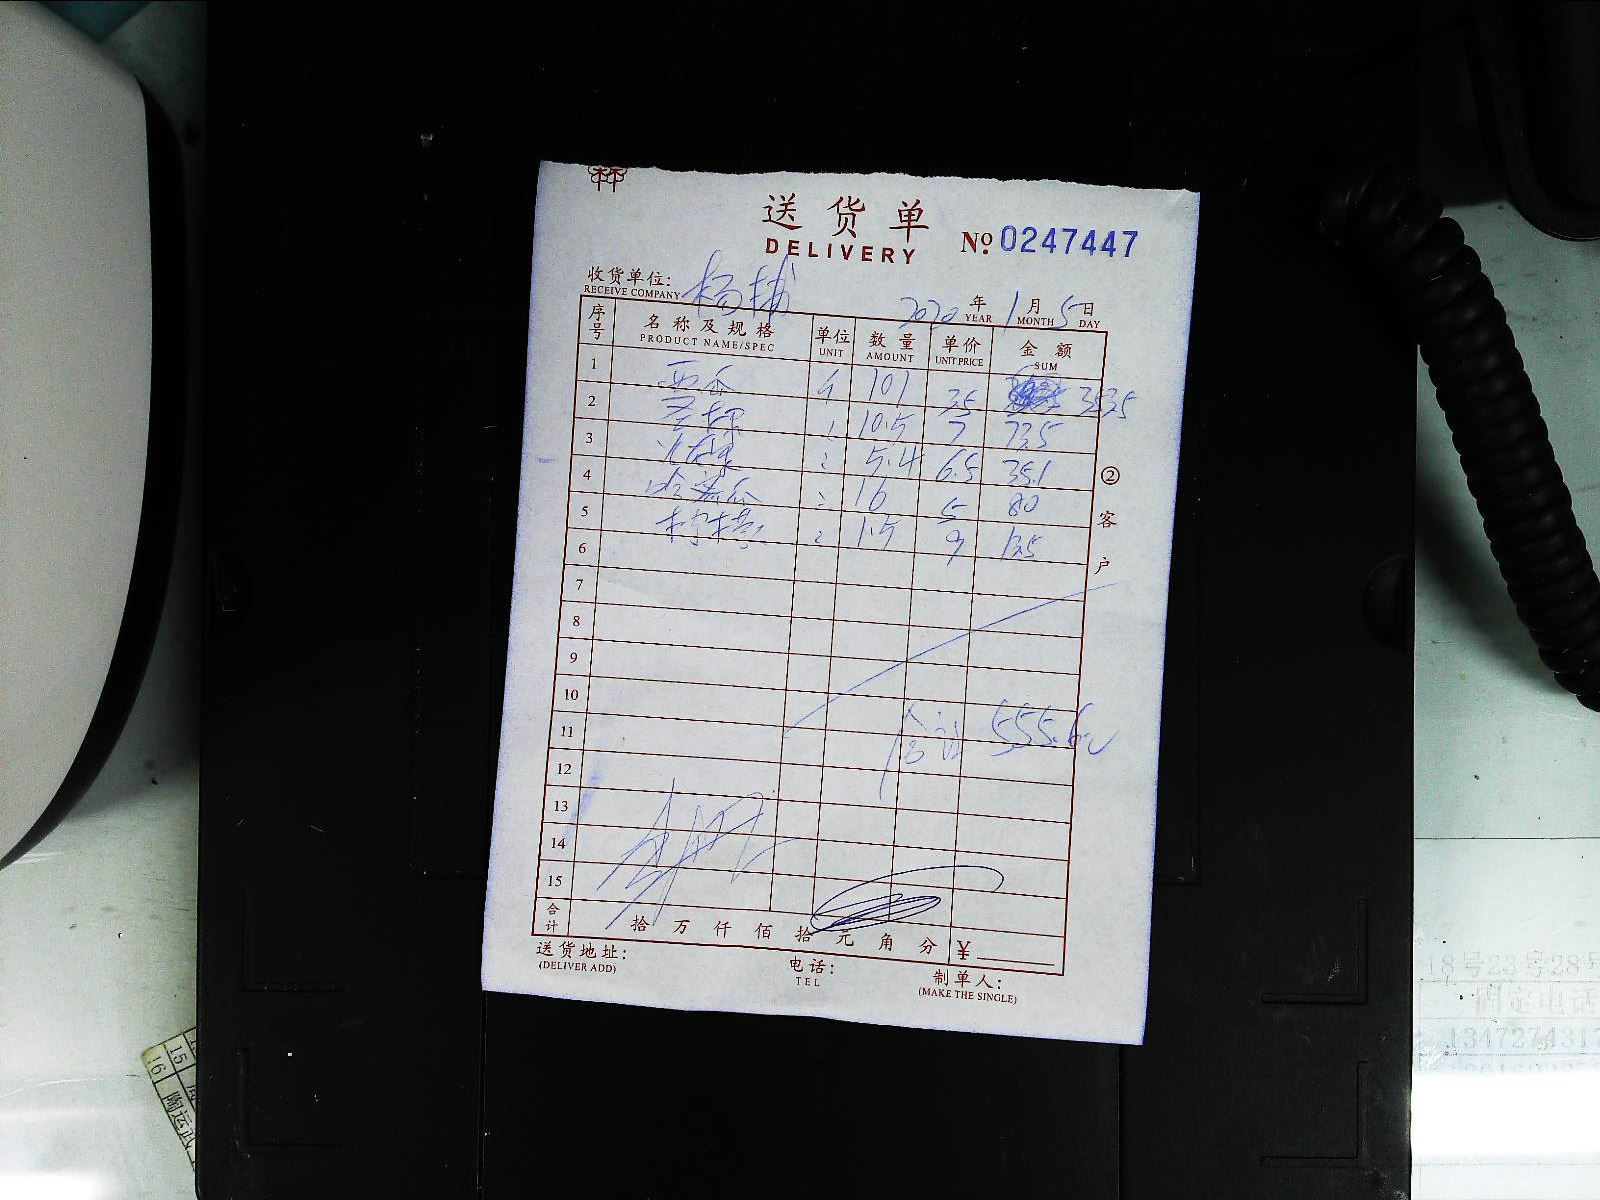 送货单
DELIVERY
№ 0247447
收货单位: 杨梅
RECEIVE COMPANY
2020 年 1 月 5 日
YEAR MONTH DAY
序号 名称及规格 单位 数量 单价 金额
PRODUCT NAME/SPEC UNIT AMOUNT UNIT PRICE SUM
1 西瓜 斤 101 3.5 353.5
2 10.5 7 73.5
3 5.4 6.5 35.1
4 哈密瓜 16 5 80
5 柠檬 1.5 9 13.5
6
7
8
9
10
11 合计 555.6
12
13
14
15
②客户
合计 拾 万 仟 佰 拾 元 角 分 ¥
送货地址:
(DELIVER ADD)
电话:
TEL
制单人:
(MAKE THE SINGLE)
18号23号28号
固定电话
1347274317
15
16 陶运武